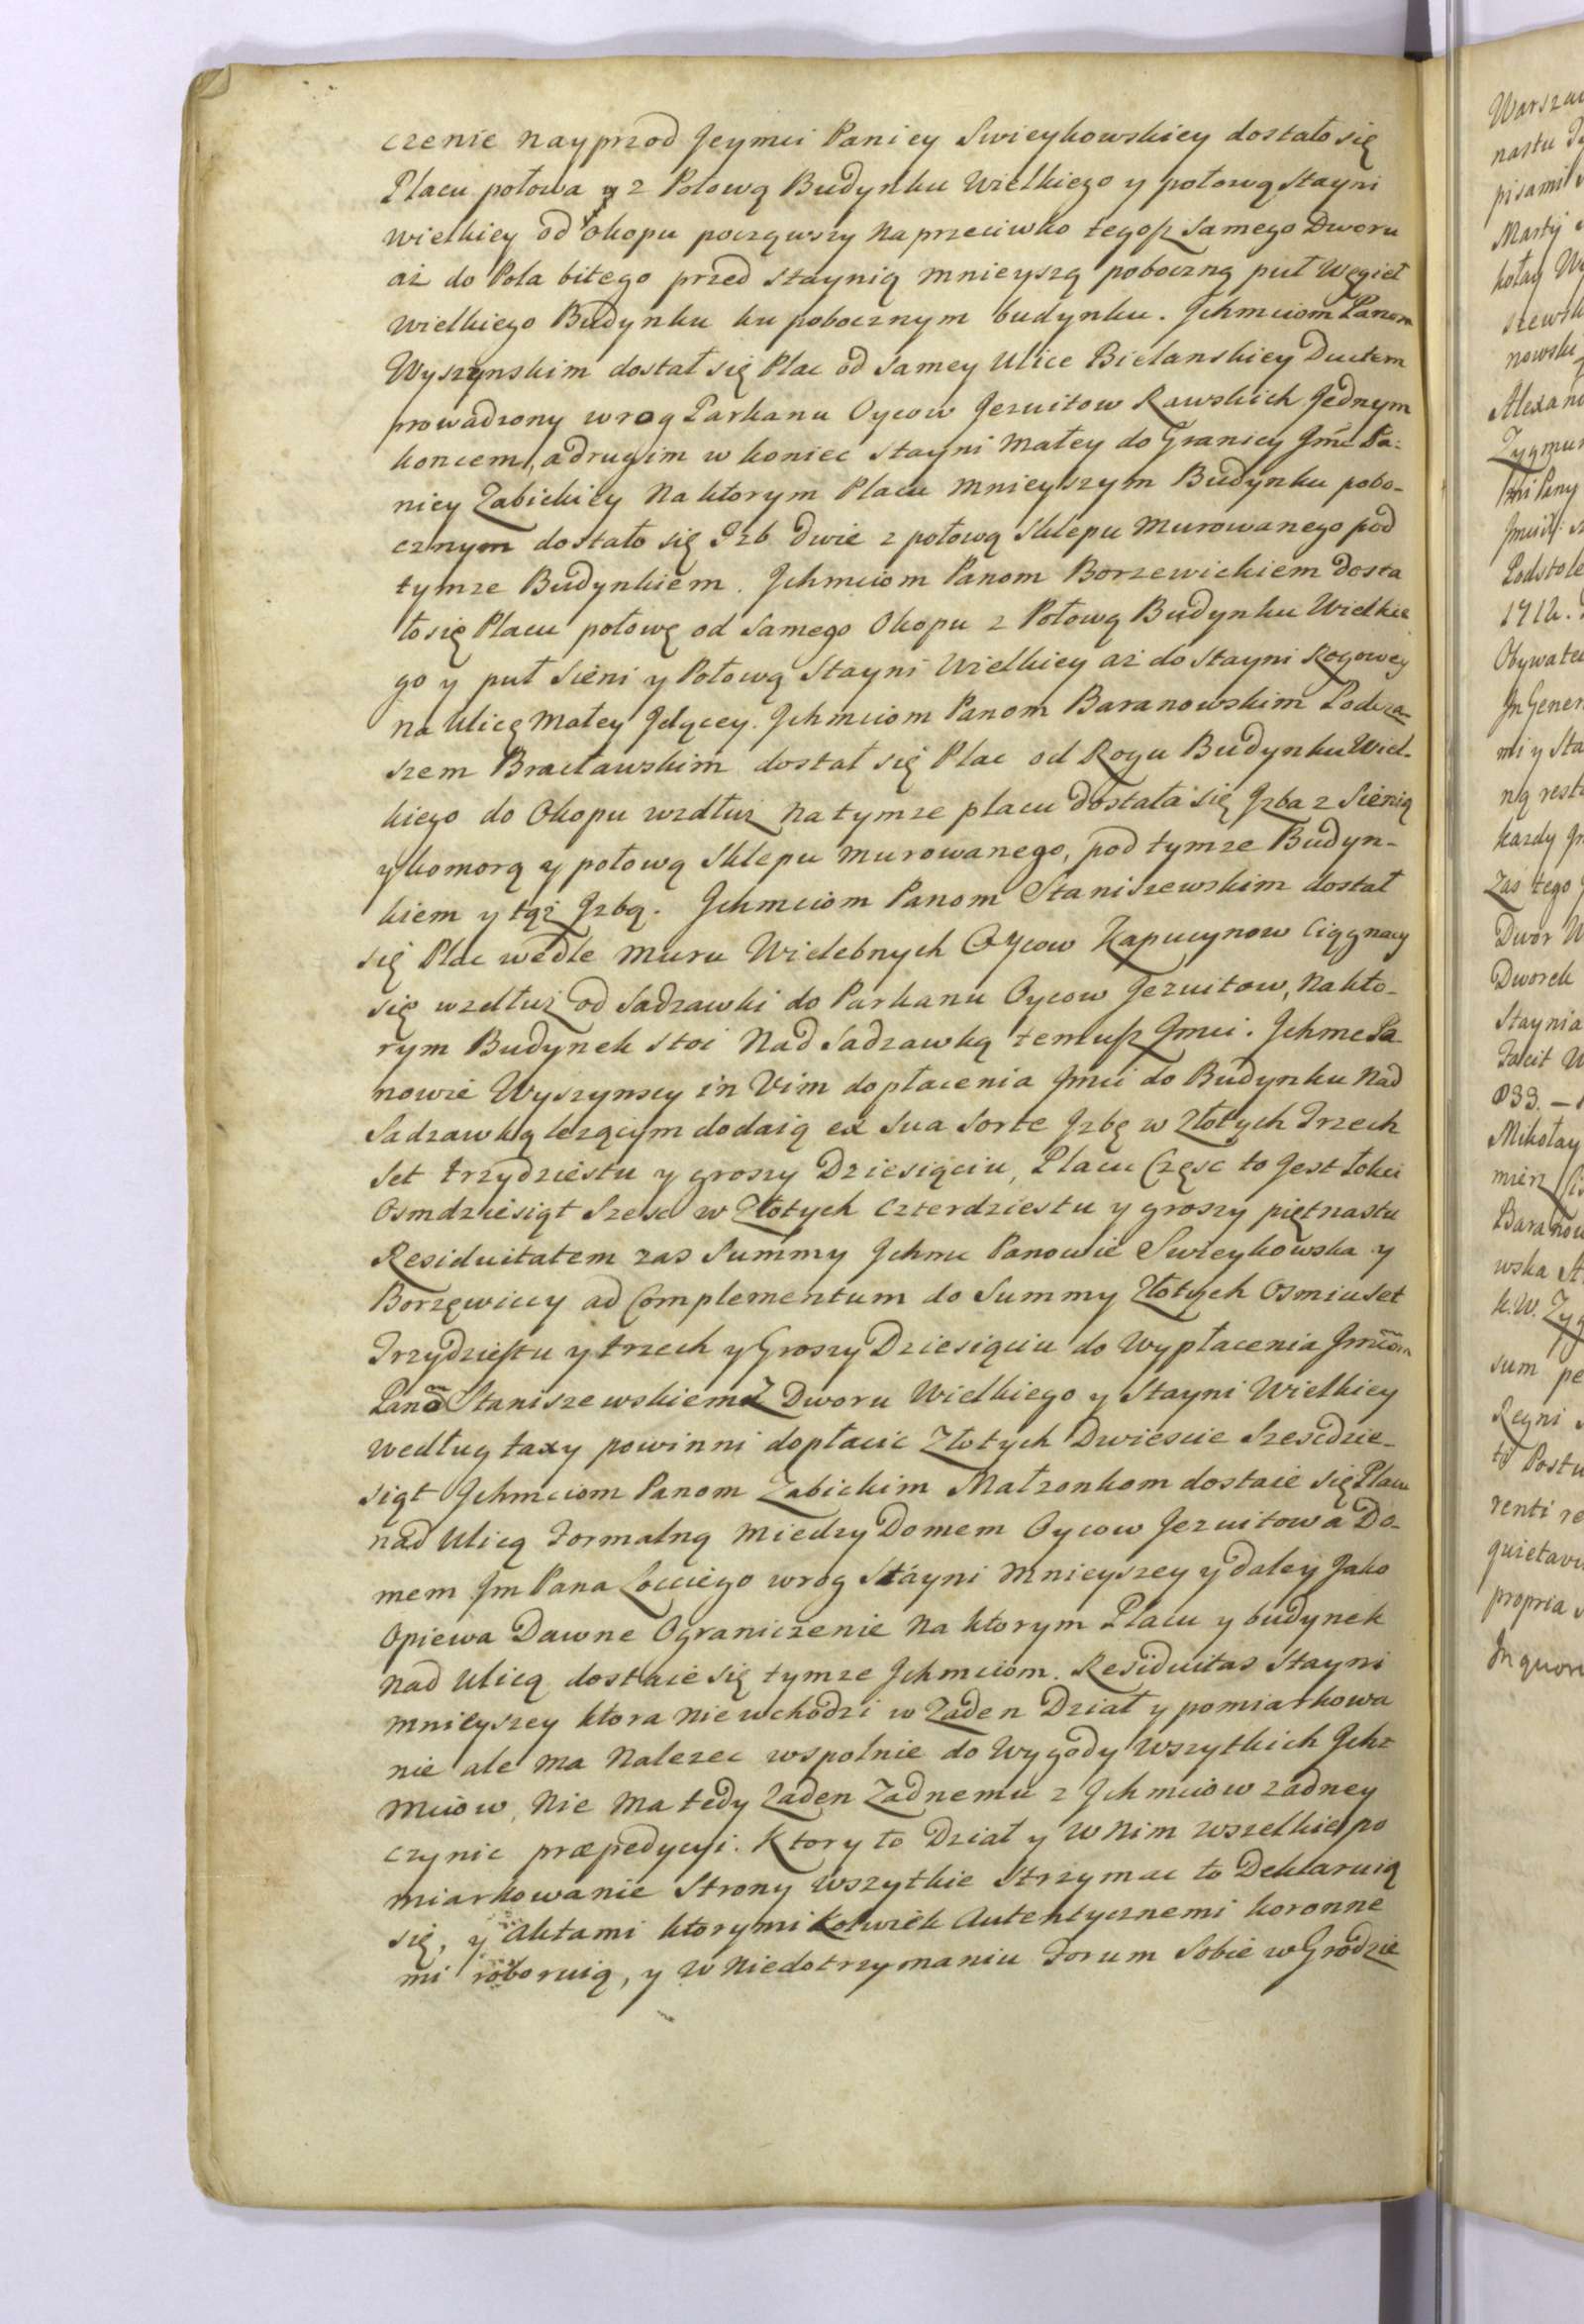 czenie nayprzod Jeymci Paniey Swieykowskiey dostało się
Placu połowa z Połową Budynku Wielkiego y połową Stayni
wielkiey od okopu począwszy naprzeciwko tegoż Samego Dworu
aż do Pola bitego przed staynią mnieyszą poboczną puł Węgieł
wielkiego Budynku ku pobocznym budynku. Jchmciom Panom
Wyszynskim dostał się Plac od Samey Ulice Bielanskiey Ductem
prowadzony wrog Parkanu Oycow Jezuitow Rawskich Jednym
koncem, a drugim w koniec Stayni Małey do Granicy Jmć Pa-
niey Zabickiey Na ktorym Placu mnieyszym Budynku pobo-
cznym dostało się Izb dwie z połową Sklepu Murowanego pod
tymze Budynkiem. Jchmciom Panom Borzewickiem dosta
ło się Placu połowę od Samego Okopu z Połową Budynku Wielkie
go y puł Sieni y Połową Stayni Wielkiey aż do Stayni Rogowey
na Ulicę Małey Jdącey. Jchmciom Panom Baranowskim Podcza-
szem Bracławskim dostał się Plac od Rogu Budynku Wiel-
kiego do Okopu wzdłuż na tymze placu dostała się Jzba z Sienią
y komorą y połową Sklepu murowanego, pod tymze Budyn-
kiem y tąż Jzbą. Jchmciom Panom Staniszewskim dostał
się Plac wedle muru Wielebnych Oycow Kapucynow Ciągnący
się wzdłuż od Sadzawki do Parkanu Oycow Jezuitow, Na kto-
rym Budynek stoi Nad Sadzawką temuż Jmci. Jchmc Pa-
nowie Wyszynscy in Vim dopłacenia Jmci do Budynku Nad
Sadzawką lezącym dodaią ex Sua Sorte Jzbę w Złotych Trzech
Set trzydziestu y groszy Dziesięciu, Placu Częsc to Jest Łokci
Osmdziesiąt Szesc w Złotych Czterdziestu y groszy piętnastu
Residuitatem zas Summy Jchmc Panowie Swieykowska y
Borzęwiccy ad Complementum do Summy Złotych Osmiuset
Trzydziestu y trzech y Groszy Dziesięciu do Wypłacenia Jmciom
Panom Staniszewskiem Z Dworu Wielkiego y Stayni Wielkiey
według taxy powinni dopłacić Złotych Dwiescie Szescdzie-
siąt Jchmciom Panom Zabickim Małzonkom dostaie się Placu
nad Ulicą Formalną miedzy Domem Oycow Jezuitow a Do-
mem Jm Pana Locciego wrog Stayni mnieyszey y daley Jako
Opiewa Dawne Ograniczenie na ktorym Placu y budynek
nad Ulicą dostaie się tymze Jchmciom. Residuitas Stayni
mnieyszey ktora nie wchodzi w Zaden Dział y pomiarkowa
nie ale ma Nalezec wspolnie do Wygody Wszytkich Jch-
mciow, Nie ma tedy Zaden Zadnemu z Jchmciow zadney
czynic præpedycyi. Ktory to Dział y w nim wszelkie po
miarkowanie Strony Wszytkie Strzymac to Deklaruią
się, y Aktami ktorymi kolwiek Autentycznemi koronne
mi roboruią, y w niedotrzymaniu Forum Sobie w Grodzie